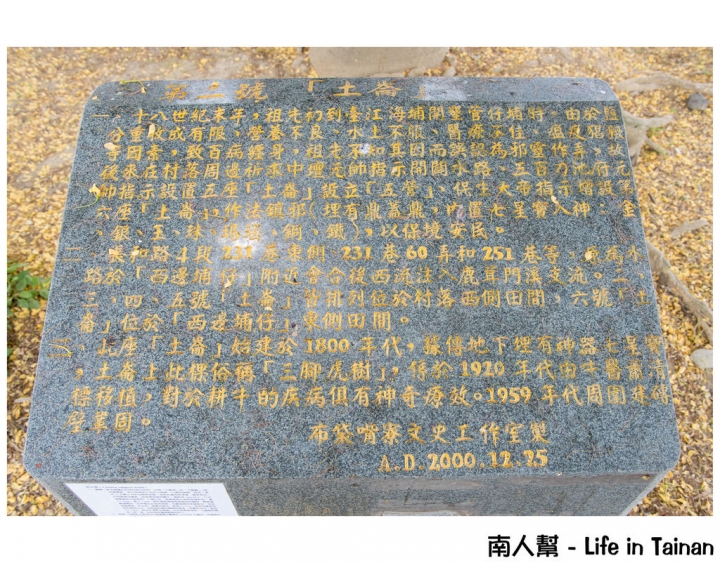 第二號 「土崙」
一、十八世紀末年，祖先初到臺江海埔開墾管仔埔時，由於鹽
分重收成有限、營養不良、水土不服、醫療不佳、瘟疫猖獗
等因素，致百病纏身，祖先不知其因而誤認為邪靈作弄，故
後求在村落周邊祈求中壇元帥指示開闢水路、五百刀池府元
帥指示設置五座「土崙」設立「五營」，保生大帝指示增設第
六座「土崙」，作法鎮邪（埋有鼎蓋鼎，內置七星寶八神、金
、銀、玉、珠、銅、鐵），以保境安民。
二、長和路4段231巷東側、231巷60弄和251巷等，舊為水
路於「西邊埔仔」附近會合後西流注入鹿耳門溪支流。二、
三、四、五號「土崙」皆排列位於村落西側田間，六號「土
崙」位於「西邊埔仔」東側田間。
三、此座「土崙」始建於1800年代，據傳地下埋有神器七星寶
，土崙上此棵俗稱「三腳虎樹」，係於1920年代由牛醫黃清
標移植，對於耕牛的疾病俱有神奇療效。1959年代周圍砌磚
壁鞏固。
布袋嘴寮文史工作室製
A.D.2000.12.25
南人幫 - Life in Tainan